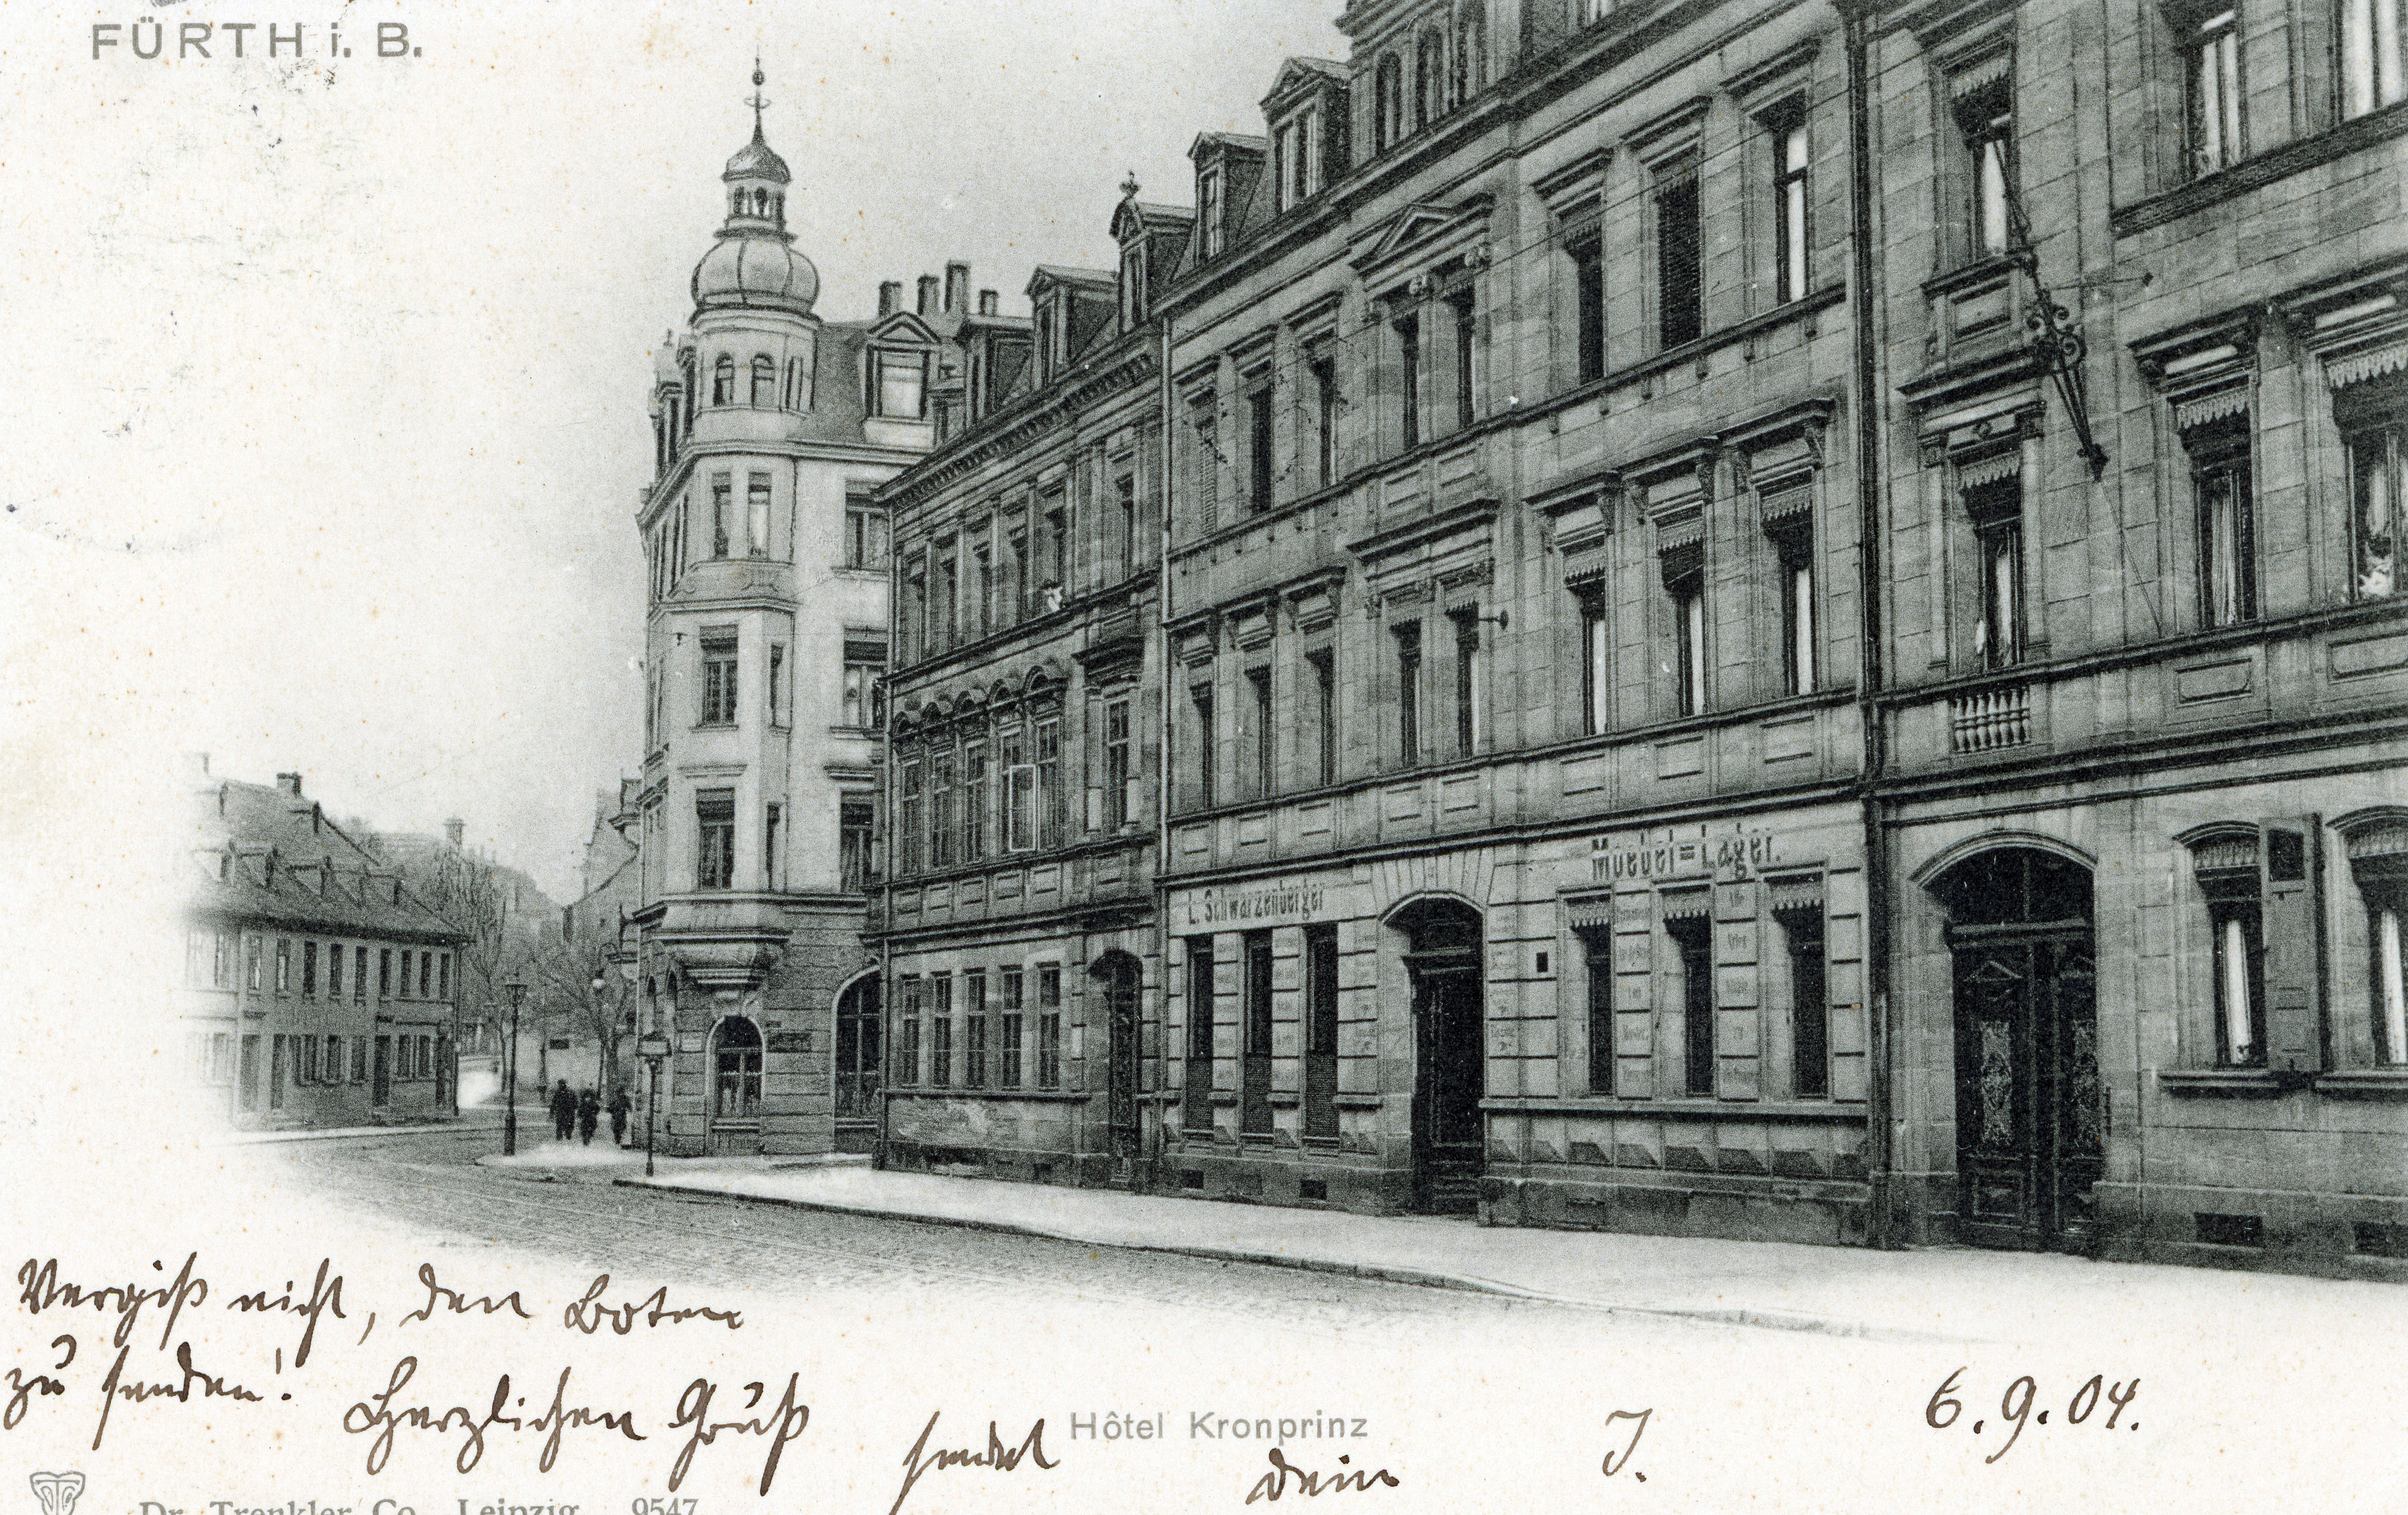 FÜRTH i. B.
Moebel=Lager.
L. Schwarzenberger
Vergiß nicht, den Boten
zu senden! Herzlichen Gruß
sendet dein J.
6.9.04.
Hôtel Kronprinz
Dr. Trenkler Co., Leipzig. 9547